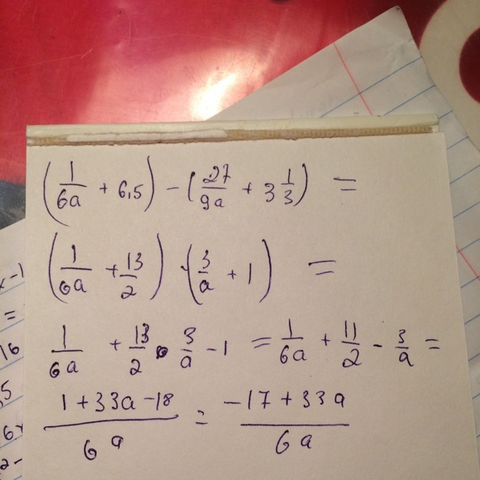 (1/6a + 6,5) - (27/9a + 3 1/3) =
(1/6a + 13/2) - (3/a + 1) =
1/6a + 13/2 - 3/a - 1 = 1/6a + 11/2 - 3/a =
(1 + 33a - 18)/6a = (-17 + 33a)/6a
x-1
=
16
,5
6x
2-